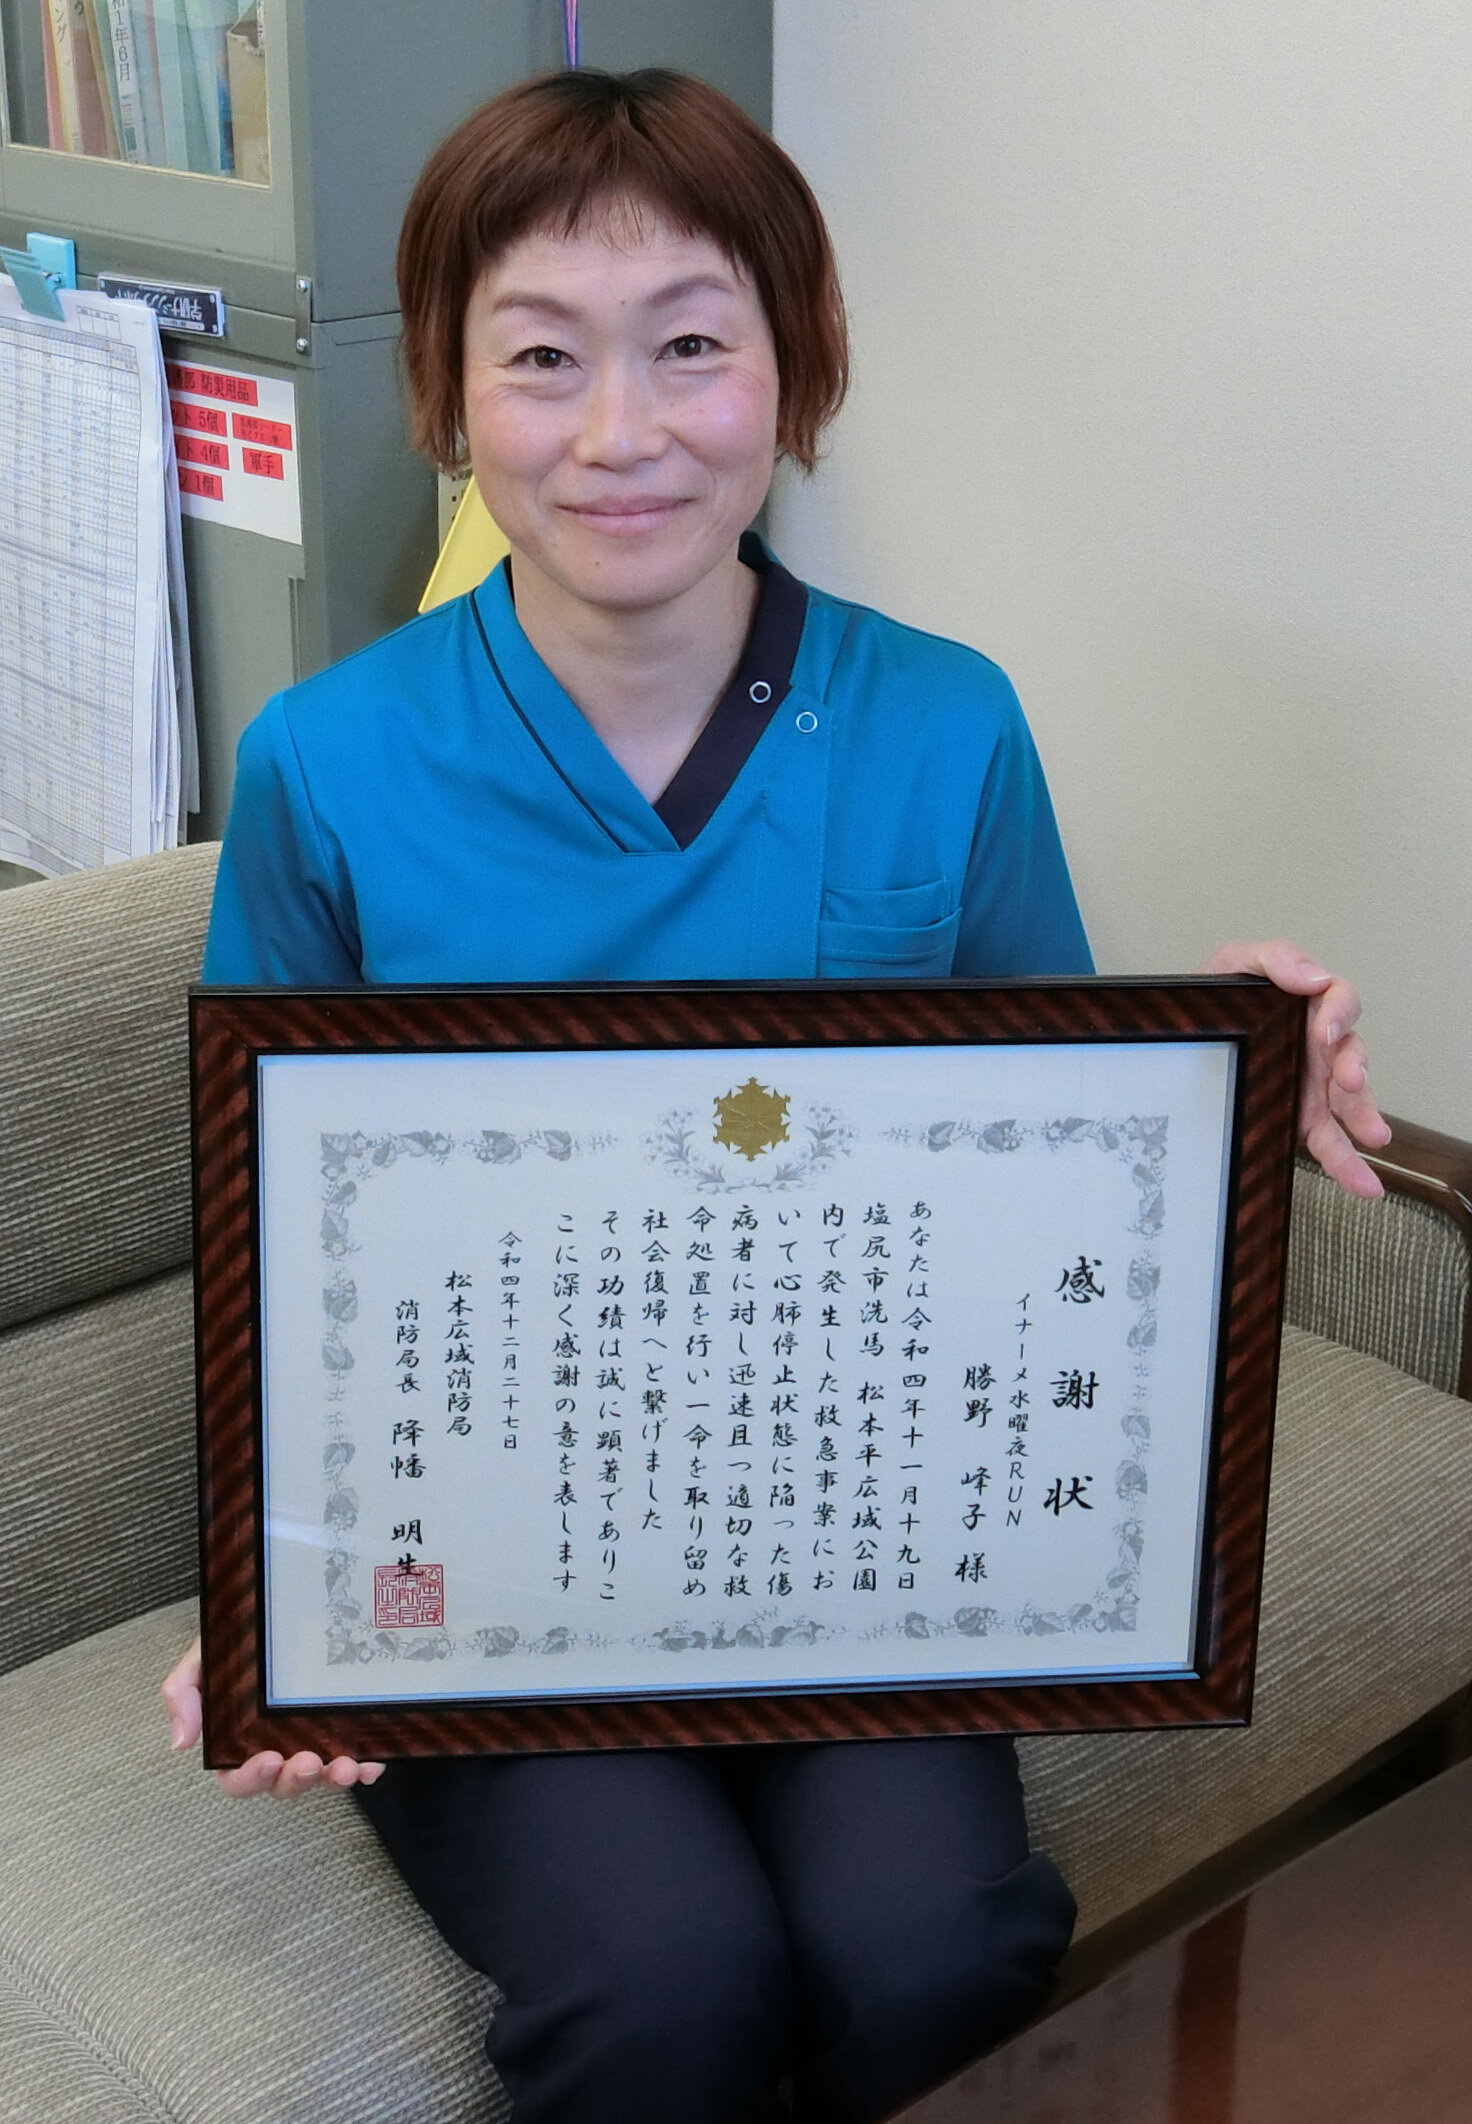 感謝状
イナーメ水曜夜RUN
勝野 峰子 様
あなたは令和四年十一月十九日
塩尻市洗馬 松本平広域公園
内で発生した救急事案にお
いて心肺停止状態に陥った傷
病者に対し迅速且つ適切な救
命処置を行い一命を取り留め
社会復帰へと繋げました
その功績は誠に顕著でありこ
こに深く感謝の意を表します
令和四年十二月二十七日
松本広域消防局
消防局長 降幡 明生
和1年6月
防災用品
5個
4個
軍手
1個